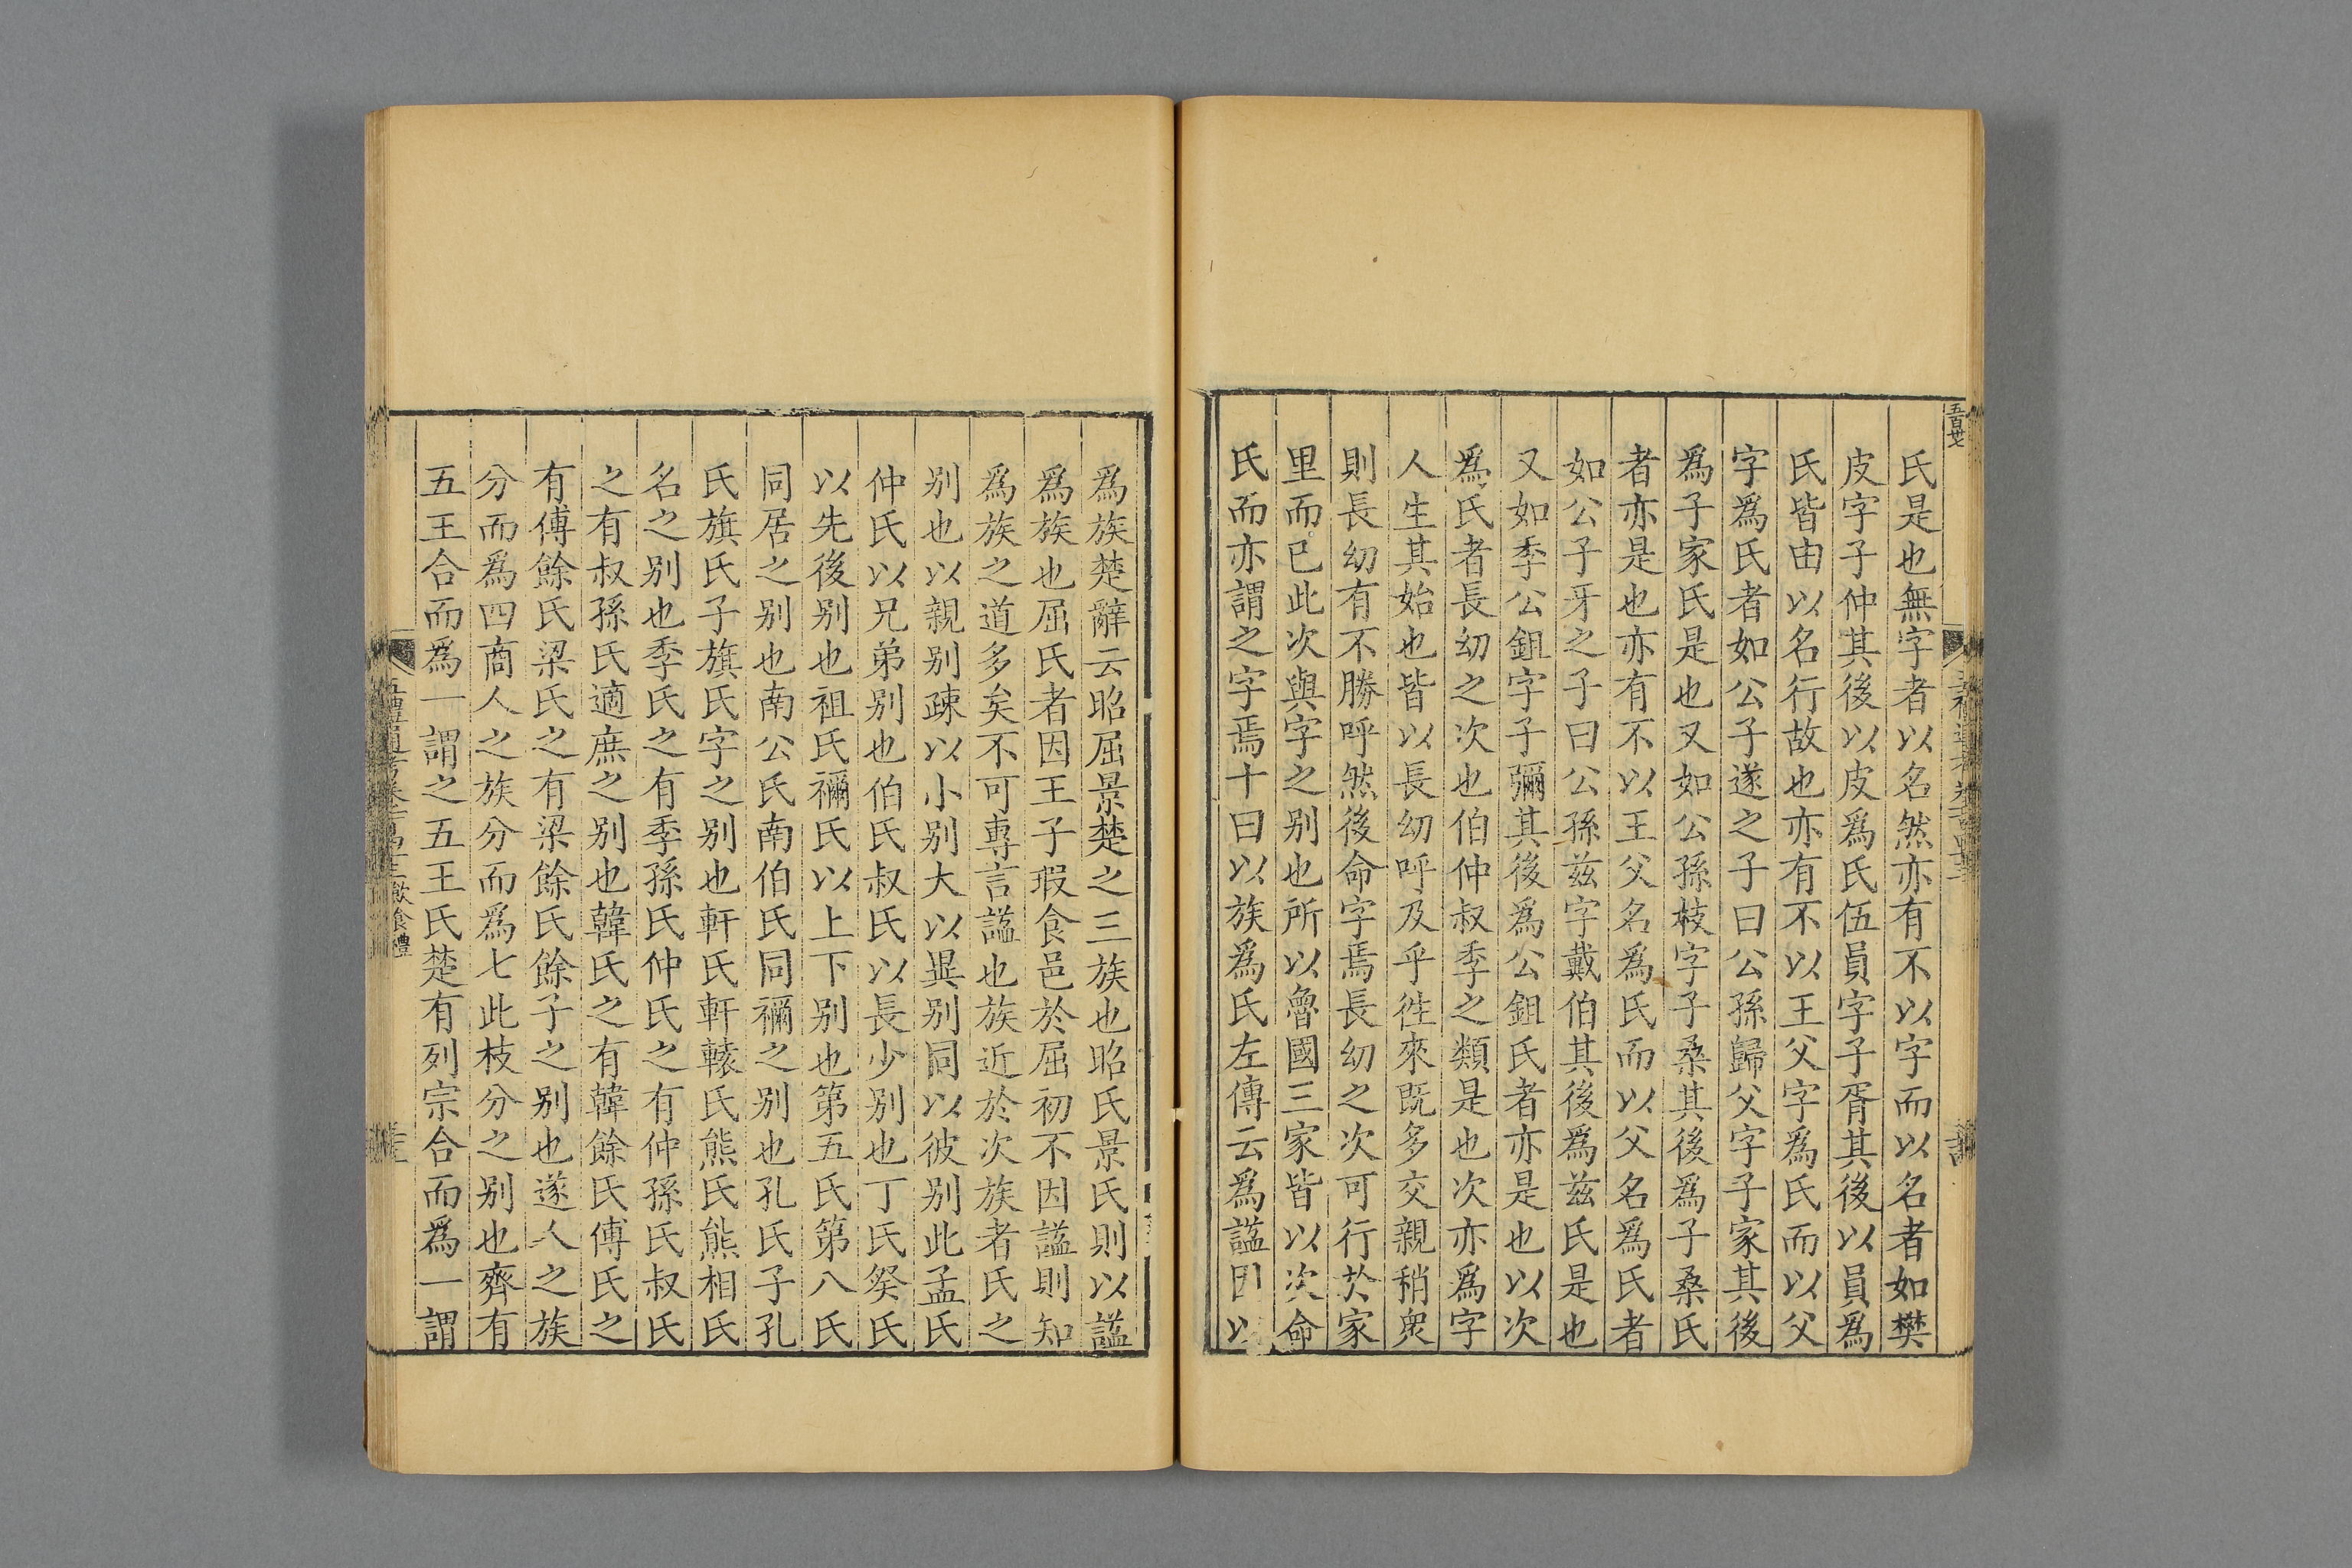 五百廿七
氏是也無字者以名然亦有不以字而以名者如樊
皮字子仲其後以皮爲氏伍員字子胥其後以員爲
氏皆由以名行故也亦有不以王父字爲氏而以父
字爲氏者如公子遂之子曰公孫歸父字子家其後
爲子家氏是也又如公孫枝字子桑其後爲子桑氏
者亦是也亦有不以王父名爲氏而以父名爲氏者
如公子牙之子曰公孫兹字戴伯其後爲兹氏是也
又如季公鉏字子彌其後爲公鉏氏者亦是也以次
爲氏者長幼之次也伯仲叔季之類是也次亦爲字
人生其始也皆以長幼呼及乎徃來既多交親稍衆
則長幼有不勝呼然後命字焉長幼之次可行於家
里而已此次與字之别也所以魯國三家皆以次命
氏而亦謂之字焉十曰以族爲氏左傳云爲謚因以
爲族楚辭云昭屈景楚之三族也昭氏景氏則以謚
爲族也屈氏者因王子瑕食邑於屈初不因謚則知
爲族之道多矣不可專言謚也族近於次族者氏之
别也以親别疎以小别大以異别同以彼别此孟氏
仲氏以兄弟别也伯氏叔氏以長少别也丁氏癸氏
以先後别也祖氏禰氏以上下别也第五氏第八氏
同居之别也南公氏南伯氏同禰之别也孔氏子孔
氏旗氏子旗氏字之别也軒氏軒轅氏熊氏熊相氏
名之别也季氏之有季孫氏仲氏之有仲孫氏叔氏
之有叔孫氏適庶之别也韓氏之有韓餘氏傅氏之
有傅餘氏梁氏之有梁餘氏餘子之别也遂人之族
分而爲四商人之族分而爲七此枝分之别也齊有
五王合而爲一謂之五王氏楚有列宗合而爲一謂
飲食禮